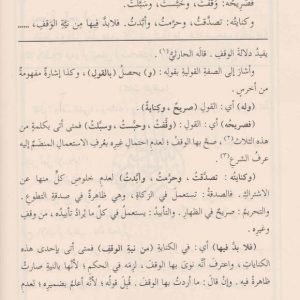 فصريحُه: وَقَفْتُ، وحَبَّسْتُ، وسَبَّلْتُ.
وكنايتُه: تصدَّقتُ، وحرَّمتُ، وأبَّدتُ. فلابدَّ فيها مِن نيَّةِ الوَقفِ، ......
يفيدُ دلالةَ الوقفِ. قاله الحارثيُّ(١).
وأشارَ إلى الصفةِ القوليةِ بقولِه: (و) يحصلُ (بالقولِ)، وكذا إشارة مفهومة
من أخرسٍ.
(وله) أي: القولِ (صريحٌ، وكنايةٌ).
(فصريحُه) أي: القولِ: (وَقَّفْتُ، وحبَّستُ، وسبَّلتُ) فمتى أتى بكلمةٍ من
هذه الثلاثِ(٢)، صحَّ بها الوقفُ؛ لعدمِ احتمالِ غيرِه بعُرفِ الاستعمالِ المنضمِّ إليه
عرفُ الشرعِ(٣).
(وكنايتُه: تصدَّقتُ، وحرَّمتُ، وأبَّدتُ) لعدمِ خلوصِ كلٍّ منها عن
الاشتراكِ. فالصدقةُ: تستعملُ في الزكاةِ، وهي ظاهرةٌ في صدقةِ التطوعِ.
والتحريمُ: صريحٌ في الظهارِ. والتأبيدُ: يستعملُ في كلِّ ما يُرادُ تأبيدُه، من وقفٍ
وغيرِه.
(فلا بدَّ فيها) أي: في الكنايةِ (من نيةِ الوقفِ) فمتى أتى بإحدى هذه
الكناياتِ، واعترفَ أنَّه نوى بها الوقفَ، لزمَه في الحكمِ؛ لأنَّها بالنيةِ صارتْ
ظاهرةً فيه. وإنْ قالَ: ما أردتُ بها الوقفَ. قُبلَ قولُه؛ لأنَّه أعلمُ بضميرِه؛ لعدمِ